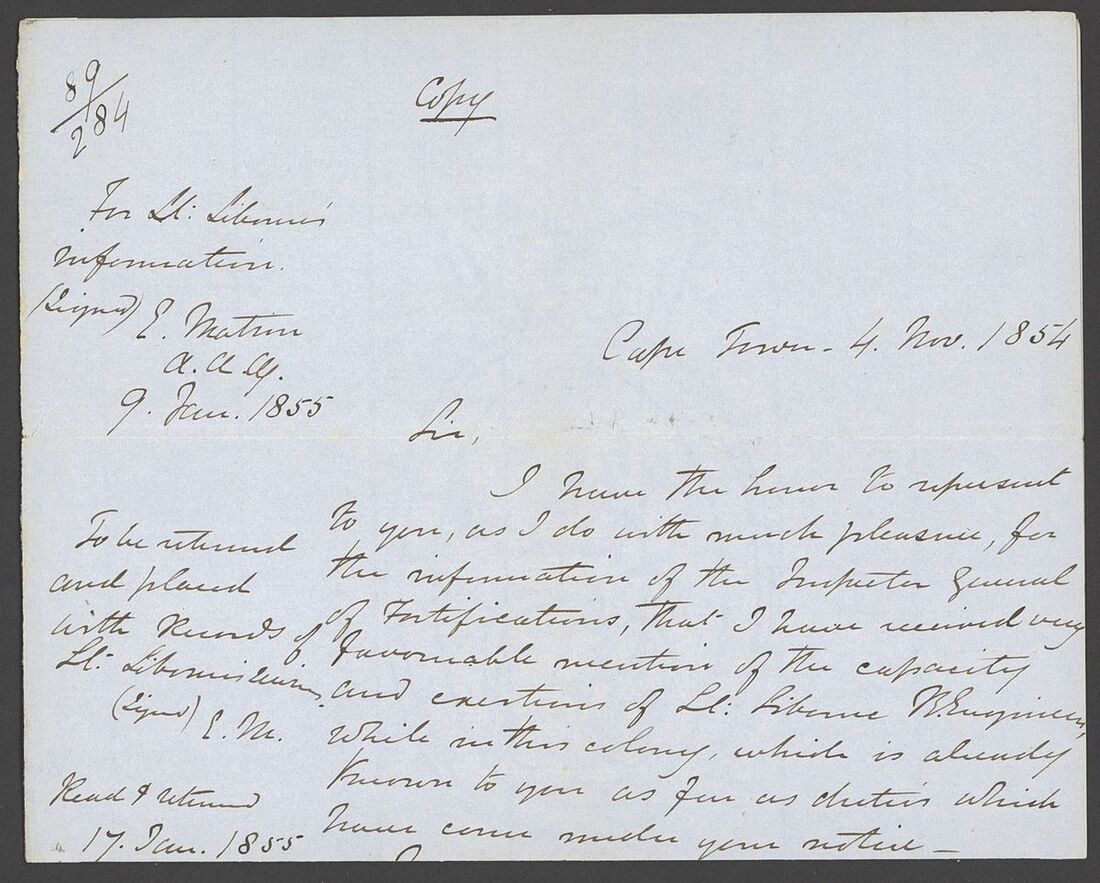 89
/284
Copy
For Lt: Siborne's
information.
(Signed) E. Matson
A.A.G.
9. Jan. 1855
Cape Town - 4. Nov. 1854
Sir,
I have the honor to represent
to you, as I do with much pleasure, for
the information of the Inspector General
of Fortifications, that I have received very
favourable mention of the capacity
and exertions of Lt: Siborne R. Engineers,
while in this colony, which is already
known to you as far as duties which
have come under your notice -
To be returned
and placed
with Records of
Lt. Siborne's
(Signed) E. M.
Read & returned
17. Jan. 1855